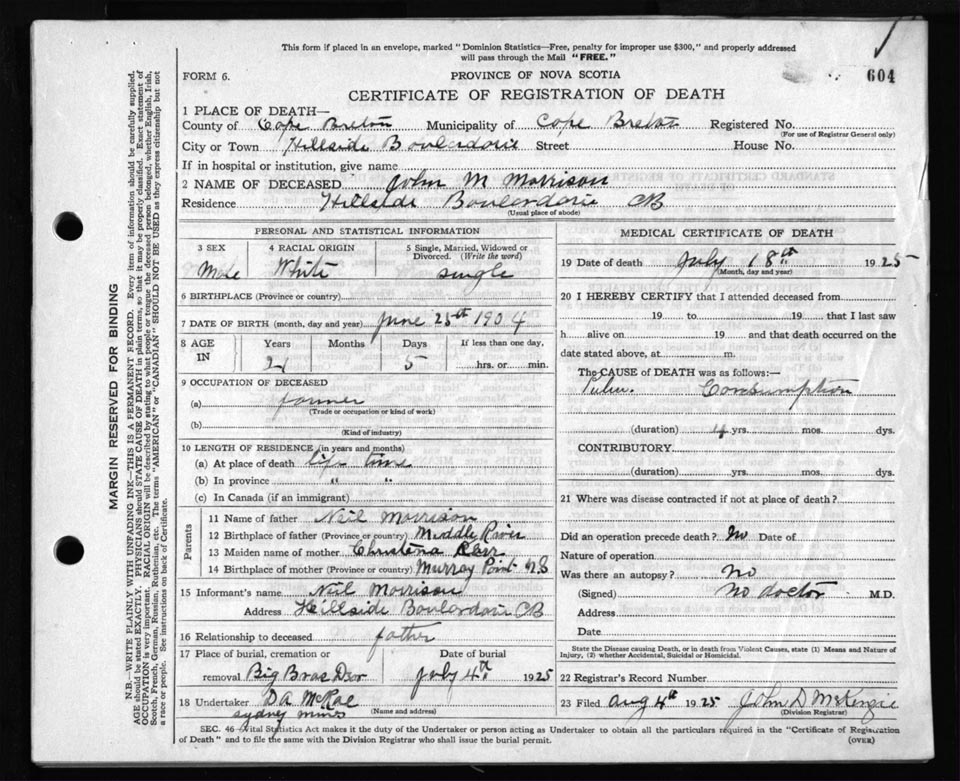 This form if placed in an envelope, marked "Dominion Statistics—Free, penalty for improper use $300," and properly addressed
will pass through the Mail "FREE."
FORM 6. PROVINCE OF NOVA SCOTIA 604
CERTIFICATE OF REGISTRATION OF DEATH
1 PLACE OF DEATH—
County of Cape Breton Municipality of Cape Breton Registered No.
(For use of Registrar General only)
City or Town Hillside Boulardarie Street House No.
If in hospital or institution, give name
2 NAME OF DECEASED John M Morrison
Residence Hillside Boulardarie CB
(Usual place of abode)
PERSONAL AND STATISTICAL INFORMATION
3 SEX 4 RACIAL ORIGIN 5 Single, Married, Widowed or
Divorced. (Write the word)
Male White single
6 BIRTHPLACE (Province or country)
7 DATE OF BIRTH (month, day and year) June 25th 1904
8 AGE IN Years Months Days If less than one day,
21 5 hrs. or min.
9 OCCUPATION OF DECEASED
(a) farmer
(Trade or occupation or kind of work)
(b)
(Kind of industry)
10 LENGTH OF RESIDENCE (in years and months)
(a) At place of death life time
(b) In province " "
(c) In Canada (if an immigrant)
Parents
11 Name of father Neil Morrison
12 Birthplace of father (Province or country) Middle River
13 Maiden name of mother Christena Kerr
14 Birthplace of mother (Province or country) Murray Point
15 Informant's name Neil Morrison
Address Hillside Boulardarie CB
16 Relationship to deceased father
17 Place of burial, cremation or Date of burial
removal Big Bras Dor July 4th 1925
18 Undertaker D A McRae
(Name and address)
Sydney mines
MEDICAL CERTIFICATE OF DEATH
19 Date of death July 18th 1925
(Month, day and year)
20 I HEREBY CERTIFY that I attended deceased from
19 to 19 that I last saw
h alive on 19 and that death occurred on the
date stated above, at m.
The CAUSE OF DEATH was as follows:—
Consumption
(duration) 4 yrs. mos. dys.
CONTRIBUTORY
(duration) yrs. mos. dys.
21 Where was disease contracted if not at place of death?
Did an operation precede death? No Date of
Nature of operation
Was there an autopsy? No
(Signed) No doctor M.D.
Address
Date
State the Disease causing Death, or in death from Violent Causes, state (1) Means and Nature of
Injury, (2) whether Accidental, Suicidal or Homicidal.
22 Registrar's Record Number
23 Filed Aug 4th 1925 John D McKenzie
(Division Registrar)
SEC. 46—Vital Statistics Act makes it the duty of the Undertaker or person acting as Undertaker to obtain all the particulars required in the "Certificate of Registration
of Death" and to file the same with the Division Registrar who shall issue the burial permit. (OVER)
MARGIN RESERVED FOR BINDING
N.B.—WRITE PLAINLY, WITH UNFADING INK—THIS IS A PERMANENT RECORD. Every item of information should be carefully supplied.
AGE should be stated EXACTLY. PHYSICIANS should STATE CAUSE OF DEATH in plain terms, so that it may be properly classified. Exact statement of
OCCUPATION is very important. RACIAL ORIGIN will be described by stating to what people or tongue the deceased person belonged, whether English, Irish,
Scotch, French, German, Russian, Ruthenian, etc. The terms "AMERICAN" or "CANADIAN" SHOULD NOT BE USED as they express citizenship but not
a race or people. See instructions on back of Certificate.